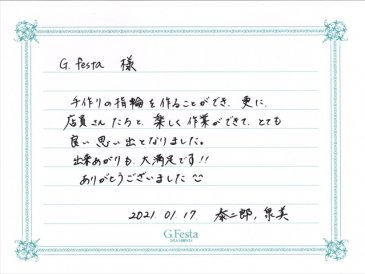 G.festa 様
手作りの指輪を作ることができ、更に、
店員さんたちと、楽しく作業ができて、とても
良い思い出となりました。
出来あがりも、大満足です!!
ありがとうございました
2021.01.17 泰二郎,泉美
G.Festa